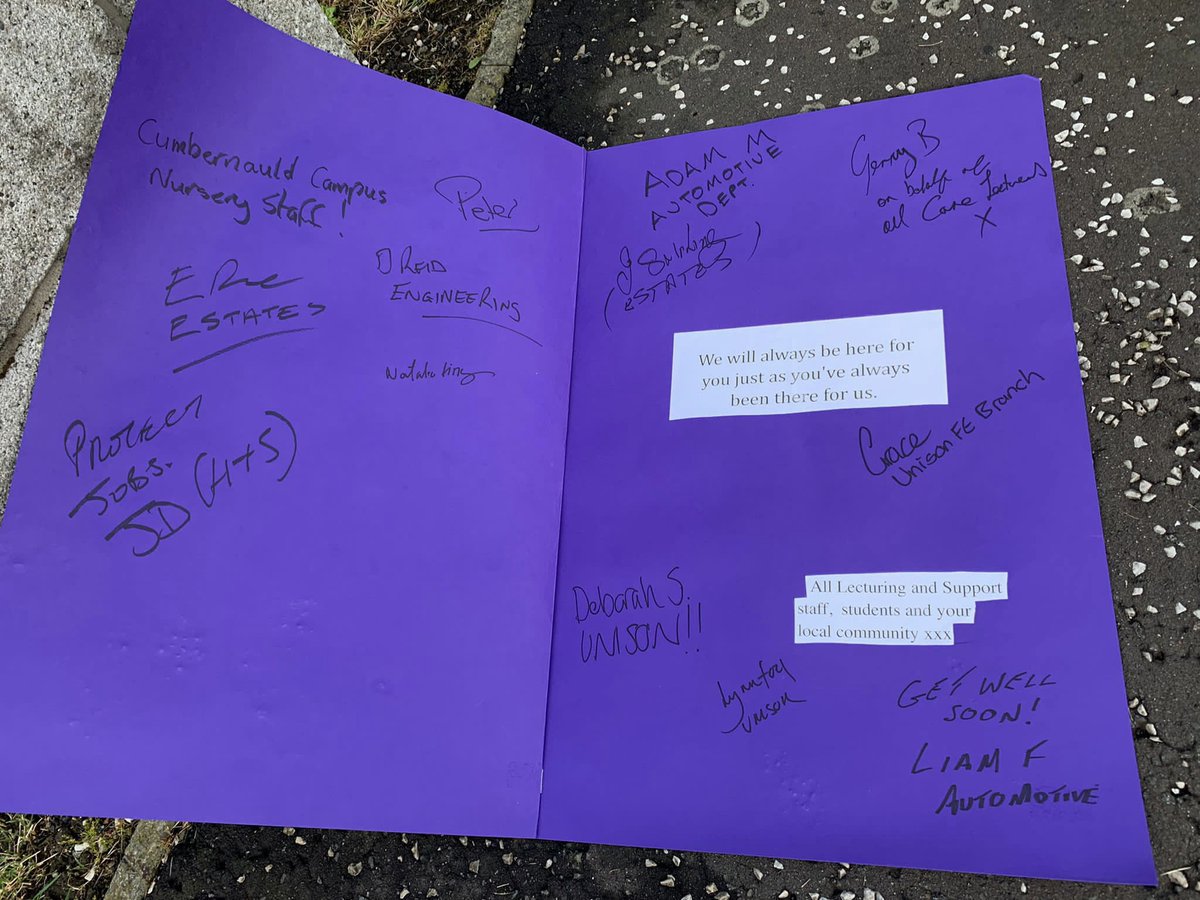 Cumbernauld Campus
Nursery Staff!
Peter
E
ESTATES
D REID
ENGINEERING
Natalie King
PROTECT
JOBS.
JD (H+S)
ADAM M
AUTOMOTIVE
DEPT.
Gerry B
on behalf of
all Care Lecturers
X
J
(ESTATES)
We will always be here for
you just as you've always
been there for us.
Grace
Unison FE Branch
Deborah S.
UNISON!!
All Lecturing and Support
staff, students and your
local community xxx
Lynn Foy
UNISON
GET WELL
SOON!
LIAM F
AUTOMOTIVE